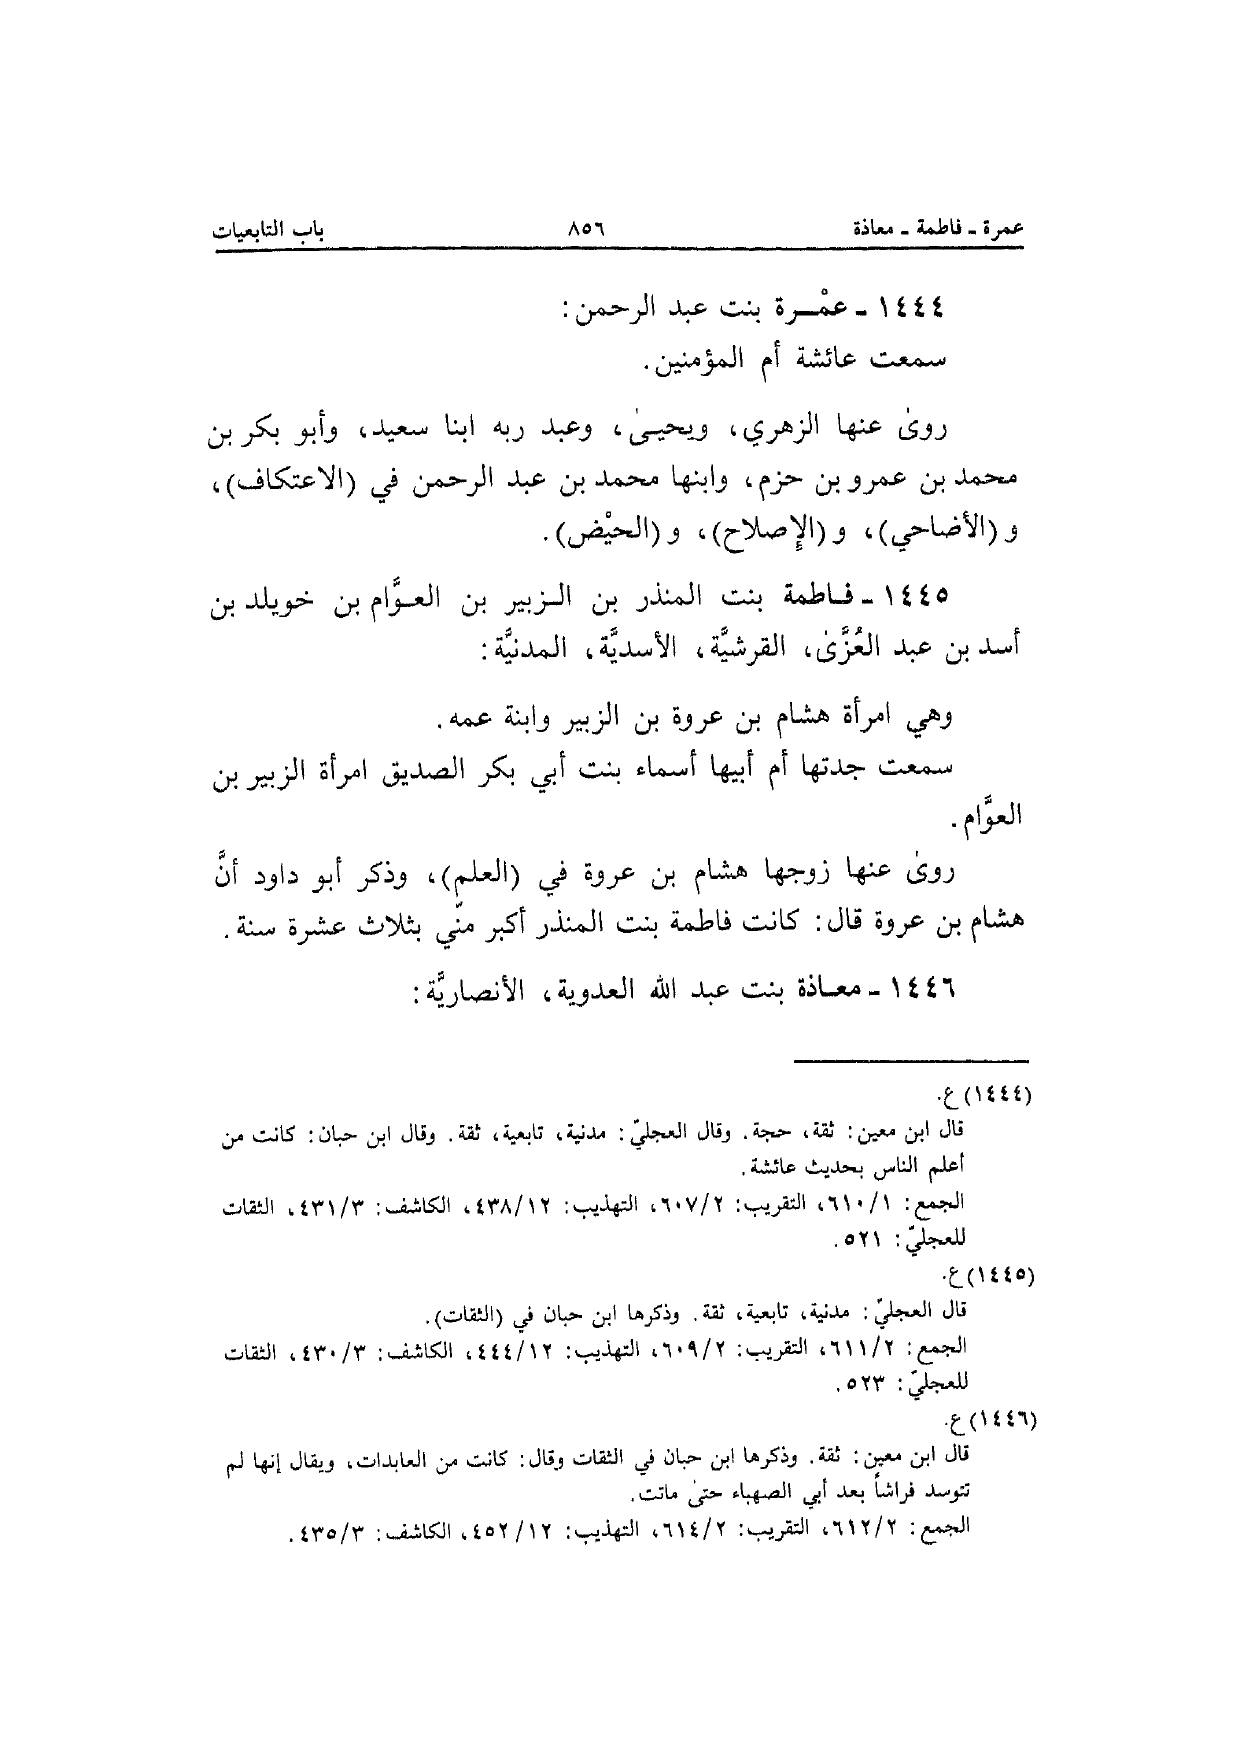 عمرة ـ فاطمة ـ معاذة ٨٥٦ باب التابعيات
١٤٤٤ ـ عمْرة بنت عبد الرحمن:
سمعت عائشة أم المؤمنين.
روىٰ عنها الزهري، ويحيىٰ، وعبد ربه ابنا سعيد، وأبو بكر بن
محمد بن عمرو بن حزم، وابنها محمد بن عبد الرحمن في (الاعتكاف)،
و (الأضاحي)، و (الإِصلاح)، و (الحيْض).
١٤٤٥ ـ فاطمة بنت المنذر بن الزبير بن العوَّام بن خويلد بن
أسد بن عبد العُزَّىٰ، القرشيَّة، الأسديَّة، المدنيَّة:
وهي امرأة هشام بن عروة بن الزبير وابنة عمه.
سمعت جدتها أم أبيها أسماء بنت أبي بكر الصديق امرأة الزبير بن
العوَّام.
روىٰ عنها زوجها هشام بن عروة في (العلم)، وذكر أبو داود أنَّ
هشام بن عروة قال: كانت فاطمة بنت المنذر أكبر منّي بثلاث عشرة سنة.
١٤٤٦ ـ معاذة بنت عبد الله العدوية، الأنصاريَّة:
(١٤٤٤) ع.
قال ابن معين: ثقة، حجة. وقال العجليّ: مدنية، تابعية، ثقة. وقال ابن حبان: كانت من
أعلم الناس بحديث عائشة.
الجمع: ٦١٠/١، التقريب: ٦٠٧/٢، التهذيب: ٤٣٨/١٢، الكاشف: ٤٣١/٣، الثقات
للعجليّ: ٥٢١.
(١٤٤٥) ع.
قال العجليّ: مدنية، تابعية، ثقة. وذكرها ابن حبان في (الثقات).
الجمع: ٦١١/٢، التقريب: ٦٠٩/٢، التهذيب: ٤٤٤/١٢، الكاشف: ٤٣٠/٣، الثقات
للعجليّ: ٥٢٣.
(١٤٤٦) ع.
قال ابن معين: ثقة. وذكرها ابن حبان في الثقات وقال: كانت من العابدات، ويقال إنها لم
تتوسد فراشاً بعد أبي الصهباء حتىٰ ماتت.
الجمع: ٦١٢/٢، التقريب: ٦١٤/٢، التهذيب: ٤٥٢/١٢، الكاشف: ٤٣٥/٣.